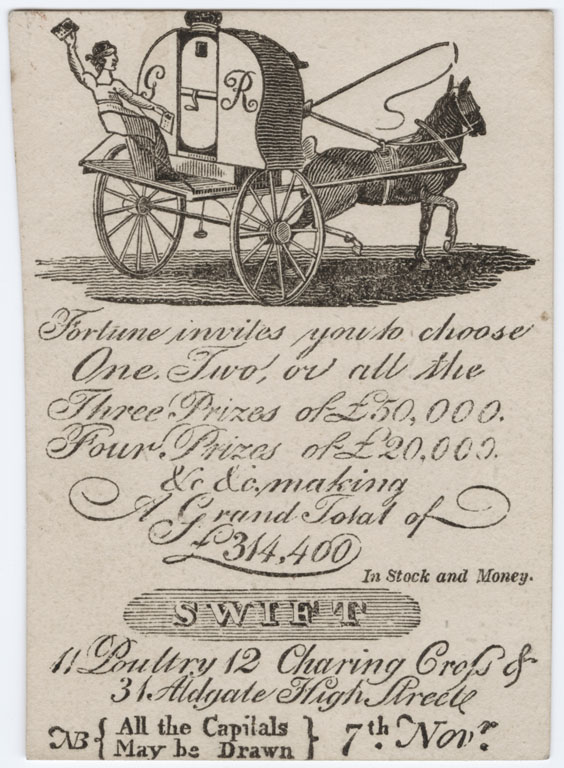 G R
Fortune invites you to choose
One, Two, or all the
Three Prizes of £30,000.
Four Prizes of £20,000.
&c &c, making
A Grand Total of
£314,400
In Stock and Money.
SWIFT
11 Poultry 12 Charing Croſs &
31 Aldgate High Street
NB { All the Capitals
May be Drawn } 7th Novr.